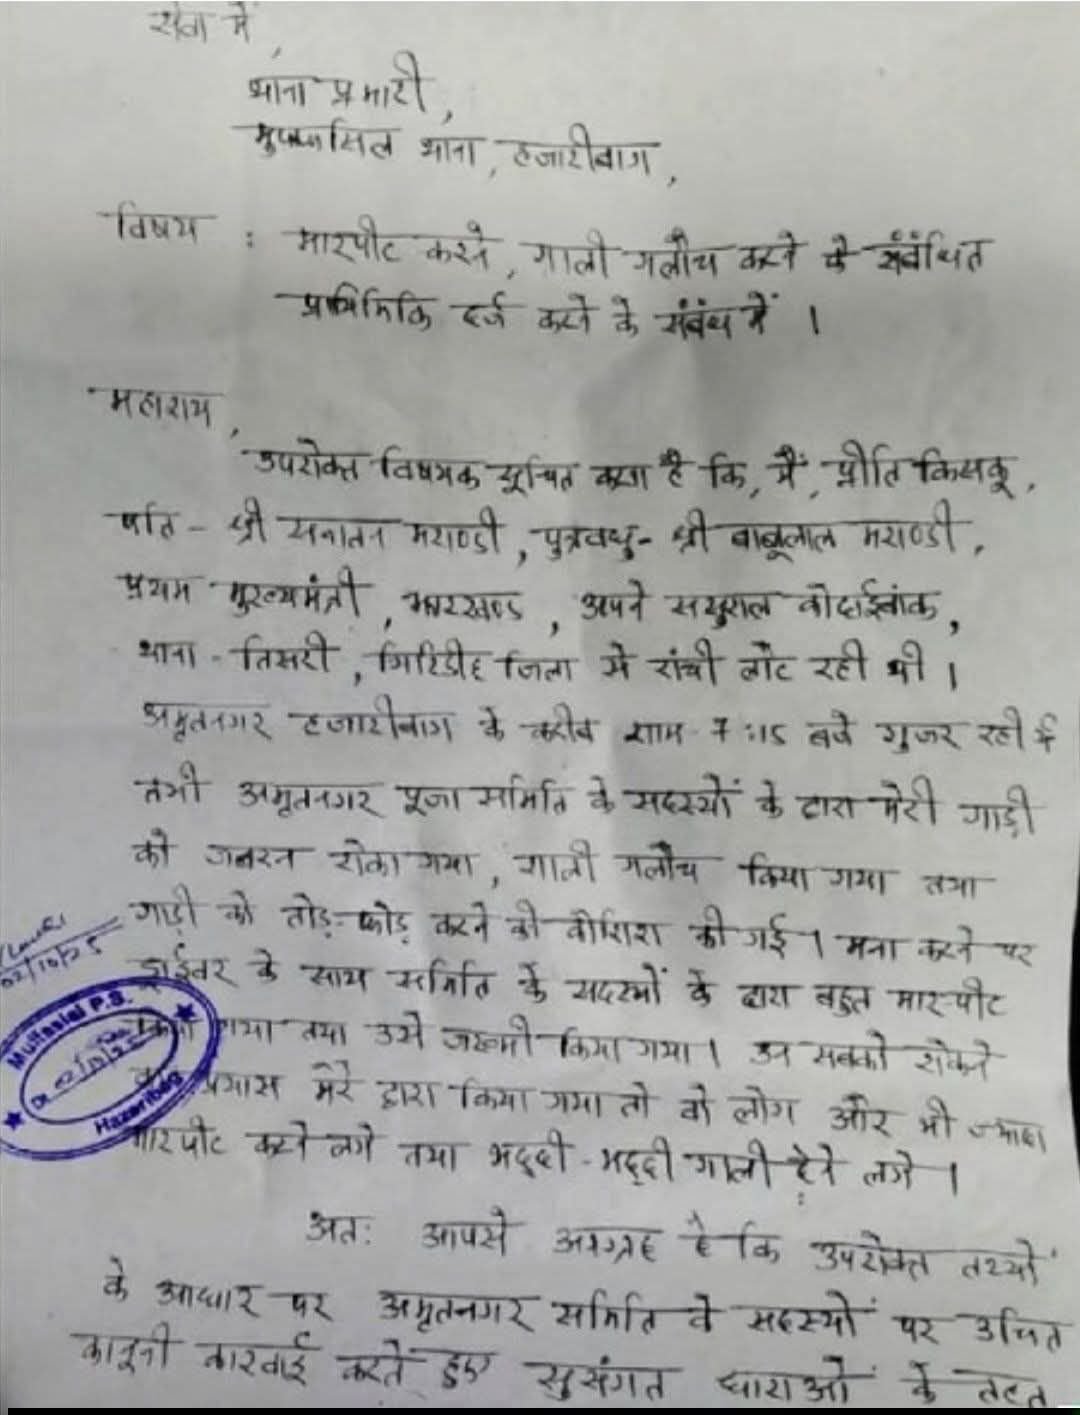 सेवा में,
थाना प्रभारी,
मुफ्फसिल थाना, हजारीबाग,
विषय : मारपीट करने, गाली गलौच करने के संबंधित
प्राथमिकि दर्ज करने के संबंध में ।
महाशय,
उपरोक्त विषयक सूचित करना है कि, मैं, प्रीति किसकू,
पति - श्री सनातन मराण्डी, पुत्रवधु - श्री बाबूलाल मराण्डी,
प्रथम मुख्यमंत्री, झारखण्ड, अपने ससुराल कोदाईबांक,
थाना - तिसरी, गिरिडीह जिला से रांची लौट रही थी ।
अमृतनगर हजारीबाग के करीब शाम 7:15 बजे गुजर रही थी
तभी अमृतनगर पूजा समिति के सदस्यों के द्वारा मेरी गाड़ी
को जबरन रोका गया, गाली गलौच किया गया तथा
गाड़ी को तोड़-फोड़ करने की कोशिश की गई । मना करने पर
02/10/25
ड्राईवर के साथ समिति के सदस्यों के द्वारा बहुत मारपीट
Muffasial P.S.
Dt. 02/10/25
Hazaribag
किया गया तथा उसे जख्मी किया गया । उन सबको रोकने
प्रयास मेरे द्वारा किया गया तो वो लोग और भी ज्यादा
मारपीट करने लगे तथा भद्दी-भद्दी गाली देने लगे ।
अतः आपसे आग्रह है कि उपरोक्त तथ्यों
के आधार पर अमृतनगर समिति के सदस्यों पर उचित
कानूनी कारवाई करते हुए सुसंगत धाराओं के तहत